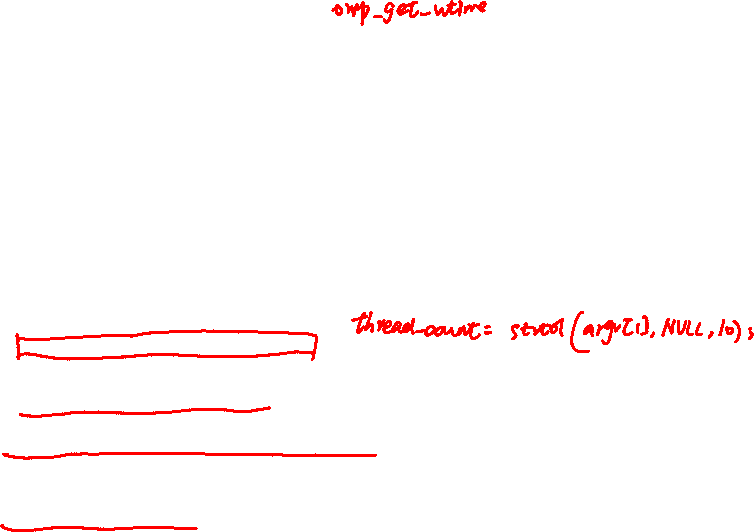 omp_get_wtime
thread_count = strtol(argv[1], NULL, 10);